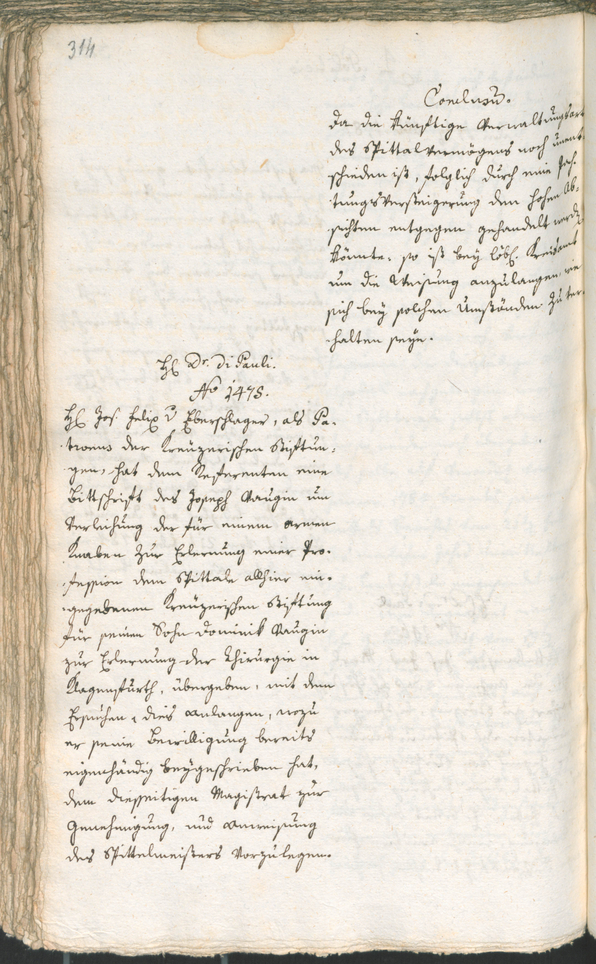 314
Conclusū.
Da die künftige Verwaltungsart
des Spittalvermögens noch unent-
schieden ist, folglich durch eine Pach-
tungsversteigerung den hohen Ab-
sichten entgegen gehandelt werdē
könnte, so ist bey löbl. Kreisamt
um die Weisung anzulangen, wie
sich bey solchen Umständen zu ver-
halten seye.
H. Dr. Di Pauli.
No 1475.
H. Jos. Felix v Eberschlager, als Pa-
tronus der Kreuzerischen Stiftun-
gen, hat dem Referenten eine
Bittschrift des Joseph Naugin um
Verleihung der für einem armen
Knaben zur Erlernung einer Pro-
fession dem Spittale allhier ein-
gegebenen Kreuzerischen Stiftung
für seinen Sohn Dominik Naugin
zur Erlernung der Chirurgie in
Klagenfurth, übergeben, mit dem
Ersuchen, dies Anlangen, wozu
er seine Bewilligung bereits
eigenhändig beygeschrieben hat,
dem diesseitigen Magistrat zur
Genehmigung, und Anweisung
des Spittelmeisters vorzulegen.